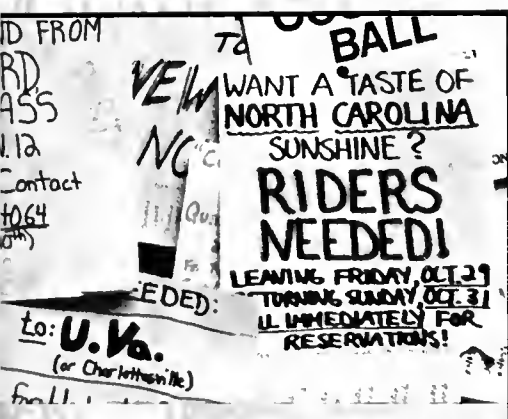 D FROM
RD
ASS
.12
Contact
to 64
to:
U.Va.
(or Charlottesville)
EDED:
NEW
To
BALL
WANT A TASTE OF
NORTH CAROLINA
SUNSHINE?
RIDERS
NEEDED!
LEAVING FRIDAY, OCT. 29
TURNING SUNDAY, OCT. 31
LL IMMEDIATELY FOR
RESERVATIONS!